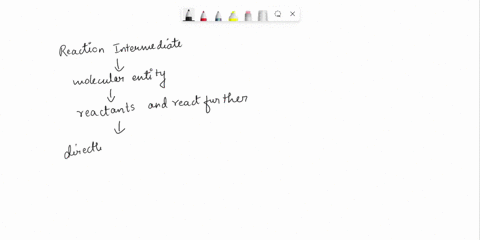 Reaction Intermediate
↓
molecular entity
↓
reactants and react further
↓
directl